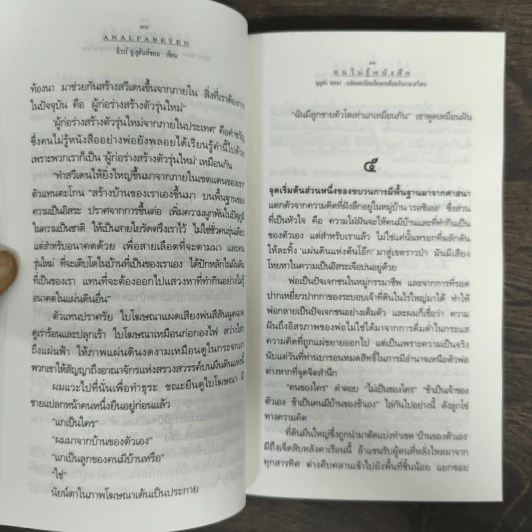 ๓๐
ANALFABETEN
ท้องนา มาช่วยกันสร้างสวีเดนขึ้นจากภายใน สิ่งที่เราต้องการ
ในปัจจุบัน คือ ผู้ก่อร่างสร้างตัวรุ่นใหม่"
'ผู้ก่อร่างสร้างตัวรุ่นใหม่จากภายในประเทศ' คือคำขวัญ
ซึ่งคนไม่รู้หนังสืออย่างพ่อยังพลอยได้เรียนรู้คำนี้ไปด้วย
เพราะพวกเราก็เป็น 'ผู้ก่อร่างสร้างตัวรุ่นใหม่' เหมือนกัน
"ทำสวีเดนให้ยิ่งใหญ่ขึ้นมาจากภายในเขตแดนของเรา
ตัวแทนตะโกน "สร้างบ้านของเราเองขึ้นมา บนพื้นฐานของ
ความเป็นอิสระ ปราศจากการขึ้นต่อ เพิ่มความผูกพันในปัญญา
ในความเป็นชาติ ให้เป็นสายใยรัดตรึงเราไว้ ไม่ใช่ชั่วคนรุ่นเดียว
แต่สำหรับอนาคตด้วย เพื่อสายเลือดที่จะตามมา และคน
รุ่นใหม่ ที่จะเติบโตในบ้านที่เป็นของเราเอง ได้ปักหลักในผืนดิน
ที่เป็นของเรา แทนที่จะต้องออกไปแสวงหาที่ทำกินอย่างไม่รู้
อนาคตในแผ่นดินอื่น"
ตัวแทนปราศรัย ใบโฆษณาแผดเสียงพ่นสีสันฉูดฉาด
ดูเร่าร้อนและปลุกเร้า ใบโฆษณาเหมือนก่อกองไฟ สว่างไสว
ถึงแผ่นฟ้า ให้ภาพแผ่นดินงดงามเหมือนดูในกระจก
พวกเขาให้สัญญาถึงอาณาจักรแห่งสรวงสวรรค์บนผืนดินแห่งนี้
ผมแวะไปที่นั่นเพื่อทำธุระ ขณะยืนดูใบโฆษณา มี
ชายแปลกหน้าคนหนึ่งยืนอยู่ก่อนแล้ว
"แกเป็นใคร"
"ผมมาจากบ้านของตัวเอง"
"แกเป็นลูกของคนมีบ้านหรือ"
"ใช่"
นัยน์ตาในภาพโฆษณาเต้นเป็นประกาย
คนไม่รู้หนังสือ
"ฉันมีลูกชายตัวโตเท่าแกเหมือนกัน" เขาพูดเหมือนฝัน
๕
จุดเริ่มต้นส่วนหนึ่งของขบวนการมีพื้นฐานมาจากศาสนา
แตกตัวจากความคิดที่ฝังลึกอยู่ในหมู่บ้าน 'เรอซิเออ' ซึ่งส่วน
ที่เป็นหัวใจ คือ ความใฝ่ฝันจะให้คนมีบ้านและที่ทำกินเป็น
ของตัวเอง แต่สำหรับเราแล้ว ไม่ใช่แค่นั้นหรอกที่ผลักดัน
ให้ละทิ้ง 'แผ่นดินแห่งต้นโอ๊ก' มาสู่เขตราวป่า มันมีเสียง
โหยหาในความเป็นอิสระเจือปนอยู่ด้วย
พ่อเป็นปัจเจกชนในหมู่กรรมาชีพ และจากการที่รอด
ปากเหยี่ยวปากกาของระบอบเจ้าที่ดินในไร่ใหญ่มาได้ ทำให้
พ่อกลายเป็นปัจเจกชนอย่างเต็มตัว และผมก็เชื่อว่า ความ
ฝันถึงอิสรภาพของพ่อไม่ใช่ได้มาจากการดื่มด่ำในกระแส
ความคิดที่ถูกแผ่ขยายออกไป แต่เป็นเพราะความเป็นจริง
นับแต่วันที่ท่านบารอนหมดสิทธิ์ในการมีอำนาจเหนือตัวพ่อ
ต่างหากที่จุดจิตสำนึก
"คนของใคร" คำตอบ "ไม่เป็นของใคร" "ข้าเป็นเจ้าของ
ตัวเอง ข้าเป็นคนมีบ้านของข้าเอง" ไล่กันไปอย่างนี้ ดังลูกโซ่
ทางความคิด
ที่ดินผืนใหญ่ซึ่งถูกนำมาตัดแบ่งทำเขต 'บ้านของตัวเอง'
มีถึงเจ็ดสิบหลังคาเรือนนี้ อ้าแขนรับผู้คนที่หลั่งไหลมาจาก
ทุกสารทิศ ต่างคืบคลานเข้าไปยังพื้นที่ชิ้นน้อย แยกซอย